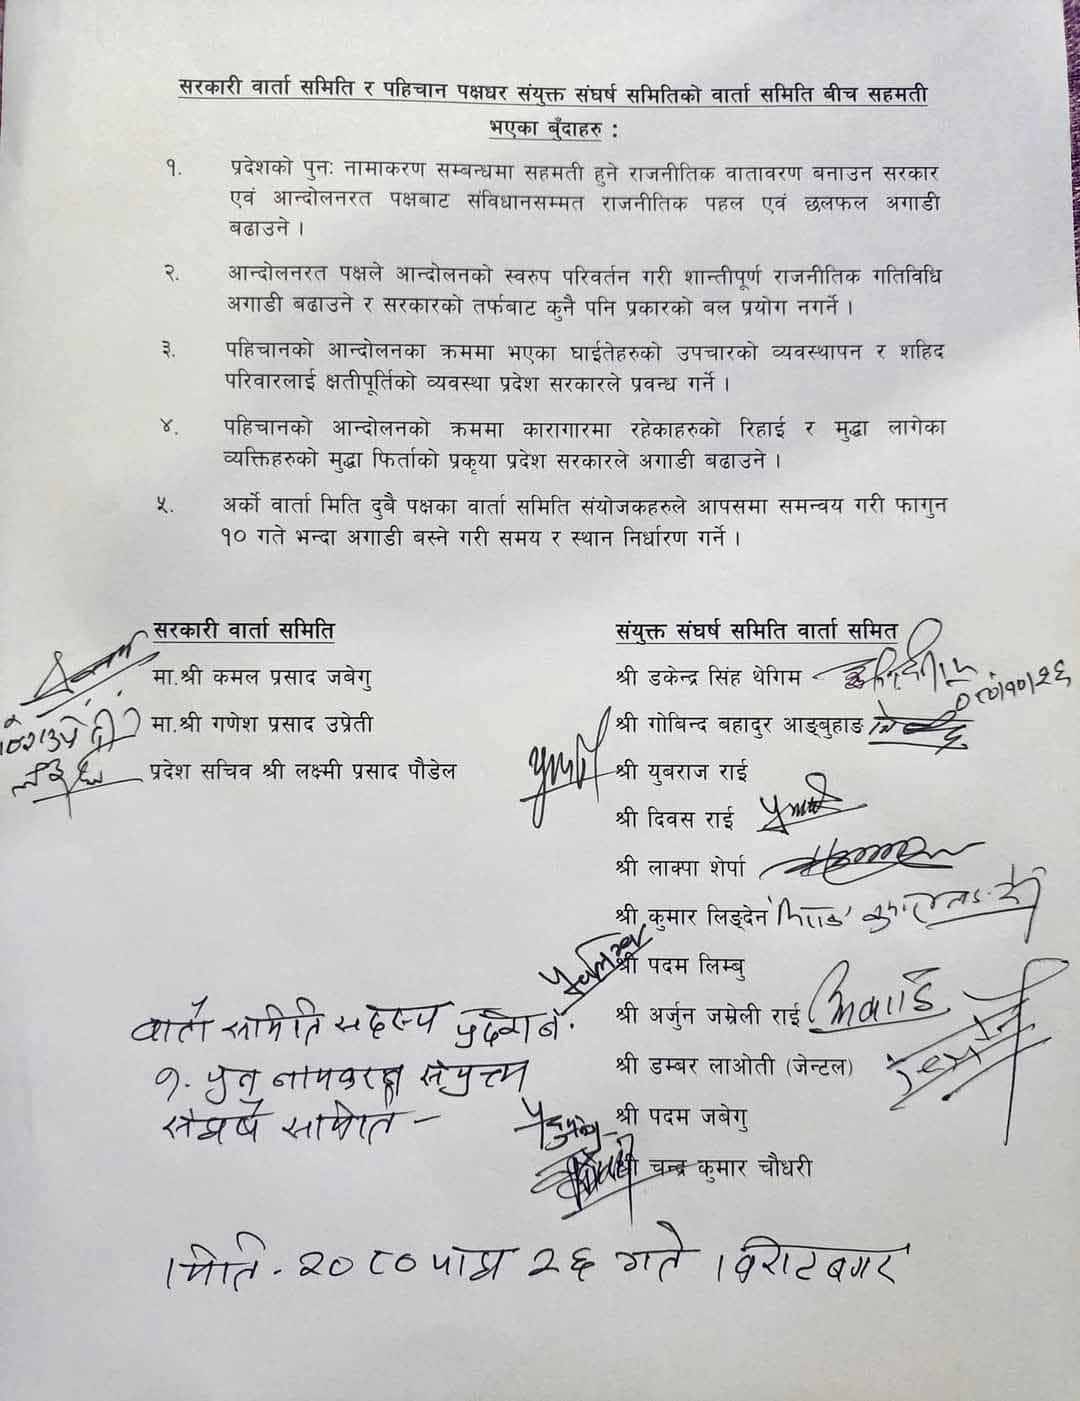 सरकारी वार्ता समिति र पहिचान पक्षधर संयुक्त संघर्ष समितिको वार्ता समिति बीच सहमती
भएका बुँदाहरु :
१. प्रदेशको पुनः नामाकरण सम्बन्धमा सहमती हुने राजनीतिक वातावरण बनाउन सरकार
एवं आन्दोलनरत पक्षबाट संविधानसम्मत राजनीतिक पहल एवं छलफल अगाडी
बढाउने ।
२. आन्दोलनरत पक्षले आन्दोलनको स्वरुप परिवर्तन गरी शान्तीपूर्ण राजनीतिक गतिविधि
अगाडी बढाउने र सरकारको तर्फबाट कुनै पनि प्रकारको बल प्रयोग नगर्ने ।
३. पहिचानको आन्दोलनका क्रममा भएका घाईतेहरुको उपचारको व्यवस्थापन र शहिद
परिवारलाई क्षतीपूर्तिको व्यवस्था प्रदेश सरकारले प्रवन्ध गर्ने ।
४. पहिचानको आन्दोलनको क्रममा कारागारमा रहेकाहरुको रिहाई र मुद्धा लागेका
व्यक्तिहरुको मुद्धा फिर्ताको प्रकृया प्रदेश सरकारले अगाडी बढाउने ।
५. अर्को वार्ता मिति दुबै पक्षका वार्ता समिति संयोजकहरुले आपसमा समन्वय गरी फागुन
१० गते भन्दा अगाडी बस्ने गरी समय र स्थान निर्धारण गर्ने ।
सरकारी वार्ता समिति
मा.श्री कमल प्रसाद जबेगु
मा.श्री गणेश प्रसाद उप्रेती
प्रदेश सचिव श्री लक्ष्मी प्रसाद पौडेल
संयुक्त संघर्ष समिति वार्ता समित
श्री डकेन्द्र सिंह थेगिम
०८०/१०/२६
श्री गोबिन्द बहादुर आङ्बुहाङ
श्री युबराज राई
श्री दिवस राई
श्री लाक्पा शेर्पा
श्री कुमार लिङ्देन
श्री पदम लिम्बु
श्री अर्जुन जम्रेली राई
श्री डम्बर लाओती (जेन्टल)
श्री पदम जबेगु
श्री चन्द्र कुमार चौधरी
वार्ता समिति सदस्य
१. संयुक्त
संघर्ष समिति -
मिति - २०८० माघ २६ गते विराटनगर